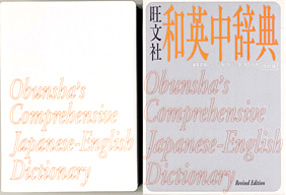 Obunsha's
Comprehensive
Japanese-English
Dictionary
旺文社
和英中辞典
Obunsha's
Comprehensive
Japanese-English
Dictionary
Revised Edition